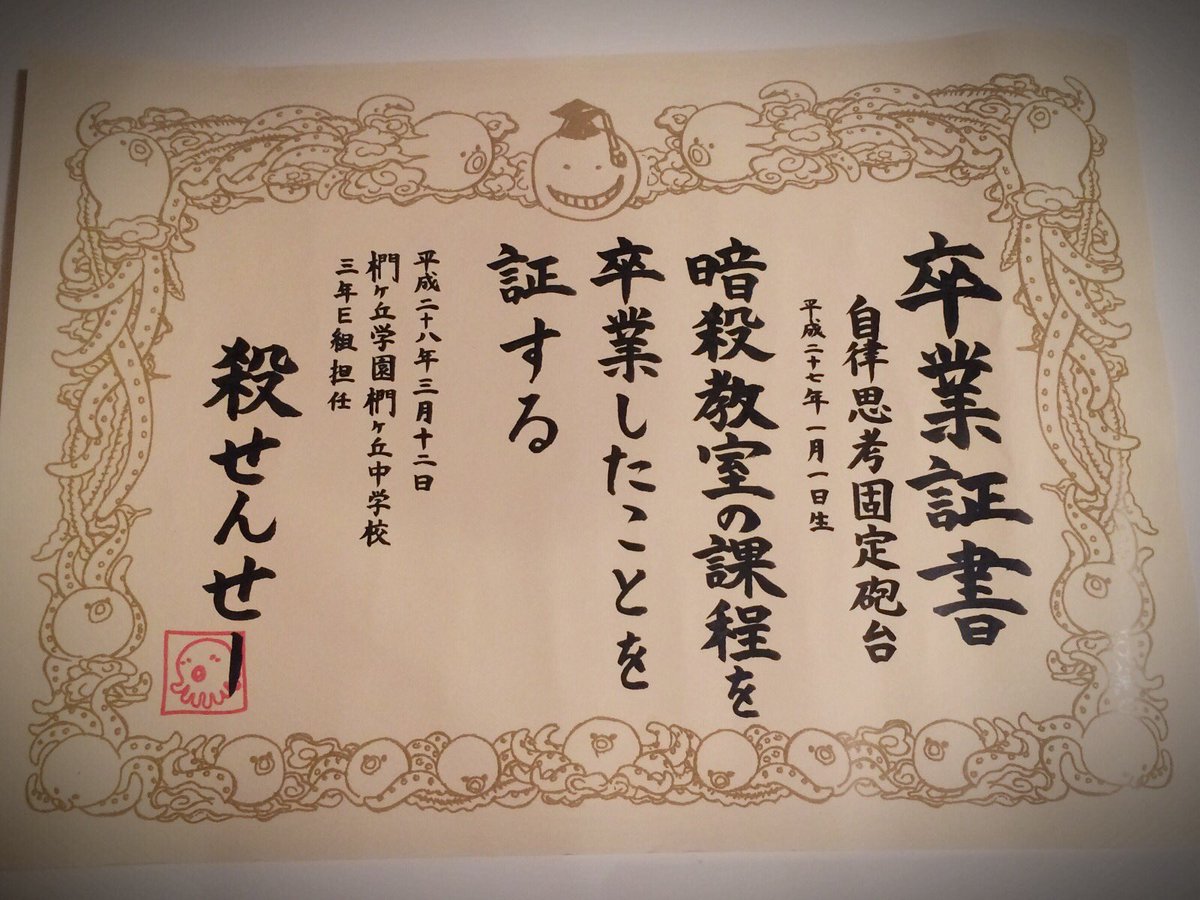 卒業証書
自律思考固定砲台
平成二十七年一月一日生
暗殺教室の課程を
卒業したことを
証する
平成二十八年三月十二日
椚ヶ丘学園椚ヶ丘中学校
三年E組担任
殺せんせー